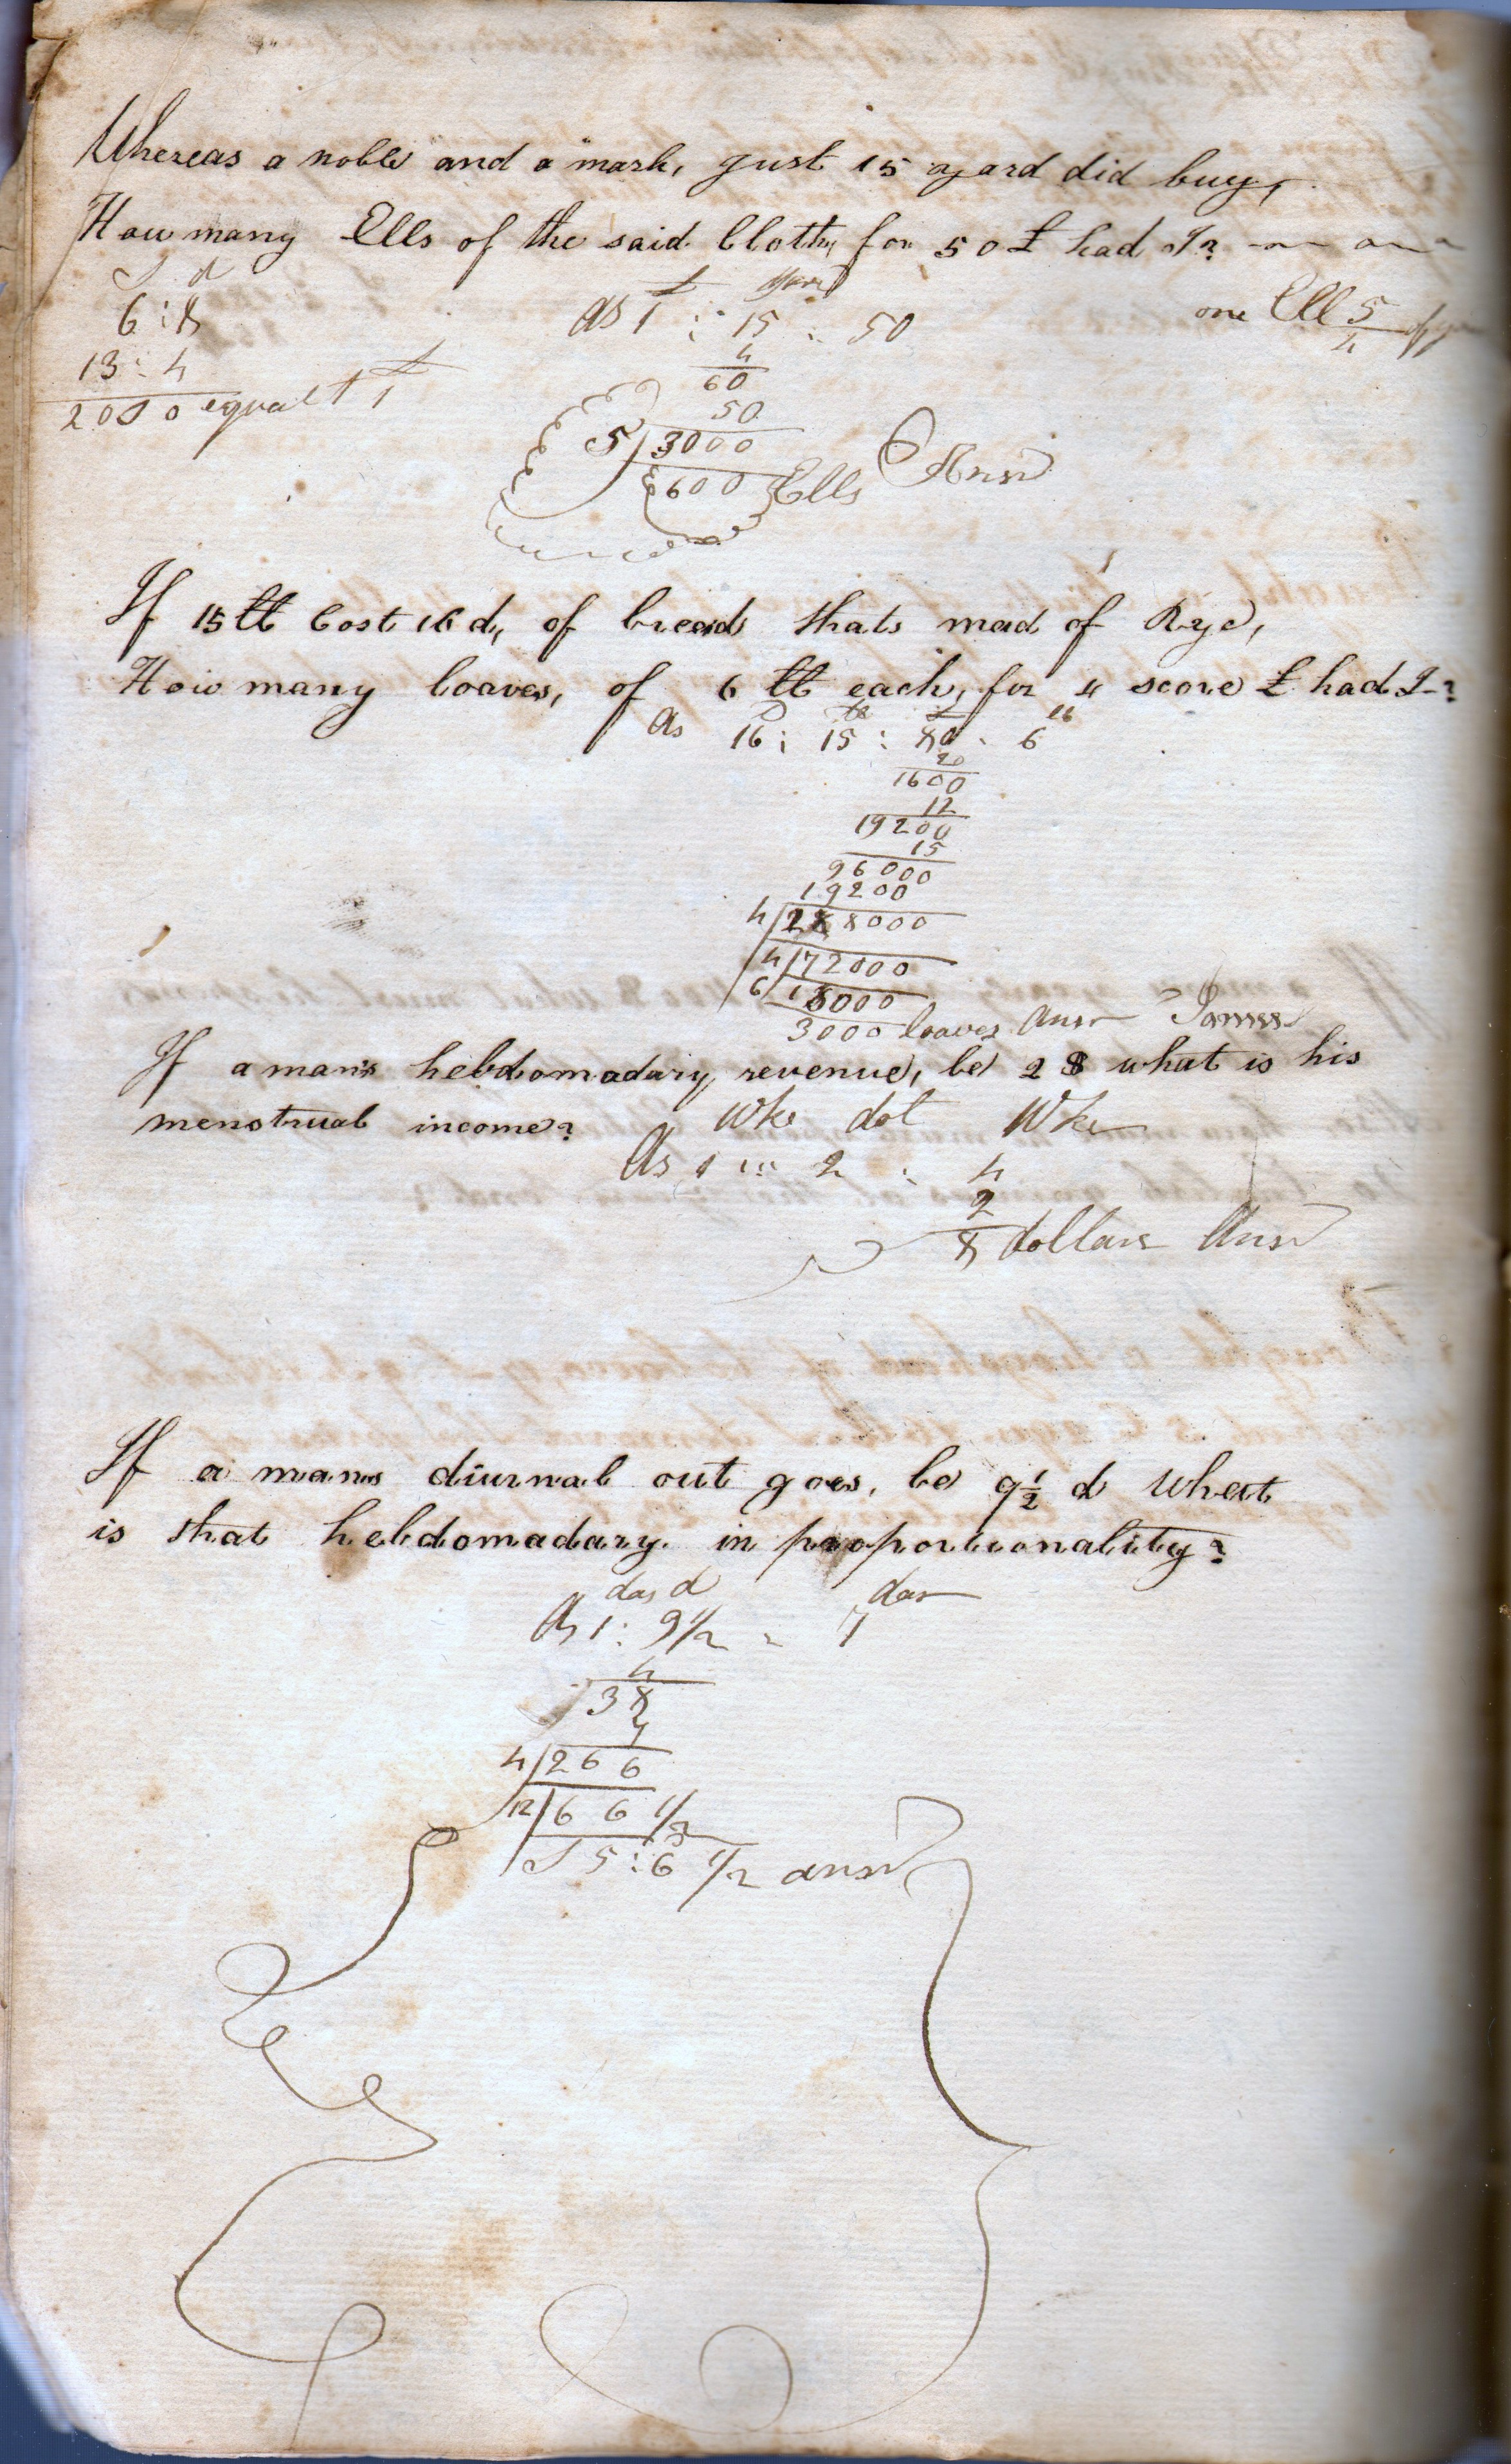 Whereas a noble and a mark, just 15 yard did buy,
How many Ells of the said Cloth, for 50 £ had I?
S d
6 : 8
13 : 4
20 0 0 equal t 1 £
£ yard
As 1 : 15 : 50
4
60
50
5/3000
600 Ells Ansr
one Ell 5/4 of
If 15 lb Cost 16 d, of bread thats mad of Rye,
How many loaves, of 6 lb each, for 4 score £ had I?
D lb £ lb
As 16 : 15 : 80 . 6
20
1600
12
19200
15
96000
19200
4/288000
4/72000
6/18000
3000 loaves Ansr
If a mans hebdomadary revenue, be 2 $ what is his
menstrual income?
Wke dol Wke
As 1 : 2 : 4
2
8 dollars Ansr
If a mans diurnal out goes, be 9½ d what
is that hebdomadary in proportionality?
day d day
As 1 : 9 1/2 : 7
4
38
7
4/266
12/66 1/2
S 5 : 6 1/2 ansr